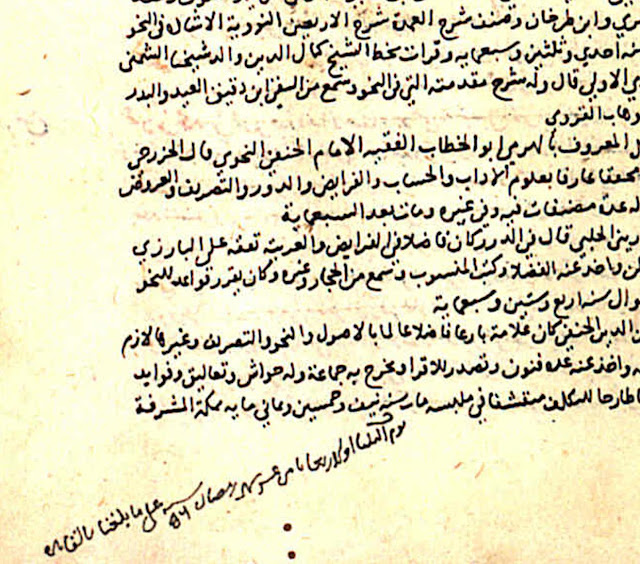 ري وابن طرخان وصنف شرح العمدة شرح الاربعين النووية الاشال في النحو
سنه احدي وثلثين وسبعمايه وقرات بخط الشيخ كمال الدين والد شيخنا الشمني
الاولي قال وله شرح مقدمته التي في النحو وسمع من التقي ابن دقيق العيد والبدر
وهاب القزوي
المعروف بالهرمي ابو الخطاب الفقيه الامام الحنفي النحوي قال الخزرجي
محققا عارفا بعلوم الاداب والحساب والفرايض والدور والتصريف والعروض
له عدة مصنفات فيه وفي غيره ومات بعد السبعماية
الحلبي قال في الدرر كان فاضلا في الفرايض والعربية تفقه علي البارزي
واخذ عنه الفضلا وكتب المنسوب وسمع من الحجار وغيره وكان يقرر قواعد للنحو
وال سنه اربع وستين وسبعماية
الدين الحنفي كان علامة بارعا فاضلا عالما بالاصول والنحو والتصريف وغيرها لازم
واخذ عنه عدة فنون وتصدر للاقرا وتخرج به جماعة وله حواش وتعاليق وفوايد
طارحا للتكلف متقشفا في ملبسه مات سنة نيف وخمسين وثماني مايه بمكة المشرفة
يوم الثلثا او الاربعا ثامن عشر شهر رمضان سنة ٥٦ علي ما بلغنا بالقاهرة